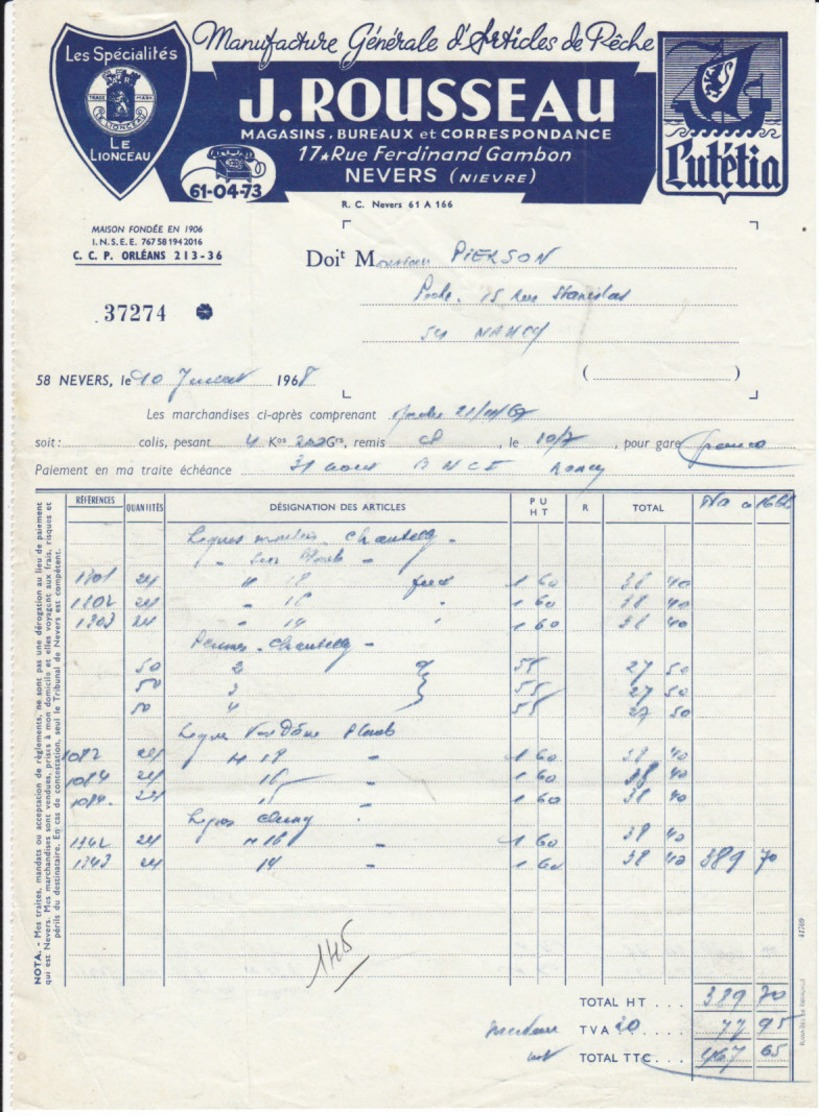 Manufacture Générale d'Articles de Pêche
Les Spécialités
TRADE MARK
LE LIONCEAU
LE
LIONCEAU
J. ROUSSEAU
MAGASINS, BUREAUX et CORRESPONDANCE
17★Rue Ferdinand Gambon
NEVERS (NIEVRE)
61-04-73
Lutétia
R. C. Nevers 61 A 166
MAISON FONDÉE EN 1906
I.N.S.E.E. 767 58 194 2016
C. C. P. ORLÉANS 213-36
Doit Monsieur PIERSON
15 rue Stanislas
54 NANCY
37274
58 NEVERS, le 10 Juillet 1968
( )
Les marchandises ci-après comprenant 21/11/67
soit : colis, pesant 4 Kos 200 Grs, remis , le 10/7 , pour gare franco
Paiement en ma traite échéance 31 aout B N C I Nancy
RÉFÉRENCES QUANTITÉS DÉSIGNATION DES ARTICLES P U H T R TOTAL
Lignes Chantilly -
1301 24 " 18 1 60 38 40
1302 24 - 16 " 1 60 38 40
1303 24 - 14 " 1 60 38 40
Chantilly -
50 2 55 27 50
50 3 55 27 50
50 4 55 27 50
Ligne Vendôme Plomb
1082 24 H 18 - 1 60 38 40
1084 24 16 - 1 60 38 40
1084. 24 - 1 60 38 40
Lignes Cluny
1342 24 H 16 - 1 60 38 40
1343 24 14 - 1 60 38 40 389 70
NOTA. - Mes traites, mandats ou acceptation de règlements, ne sont pas une dérogation au lieu de paiement
qui est Nevers. Mes marchandises sont vendues, prises à mon domicile et elles voyagent aux frais, risques et
périls du destinataire. En cas de contestation, seul le Tribunal de Nevers est compétent.
TOTAL HT . . . 389 70
TVA 20 . . . . 77 95
TOTAL TTC. . . 467 65